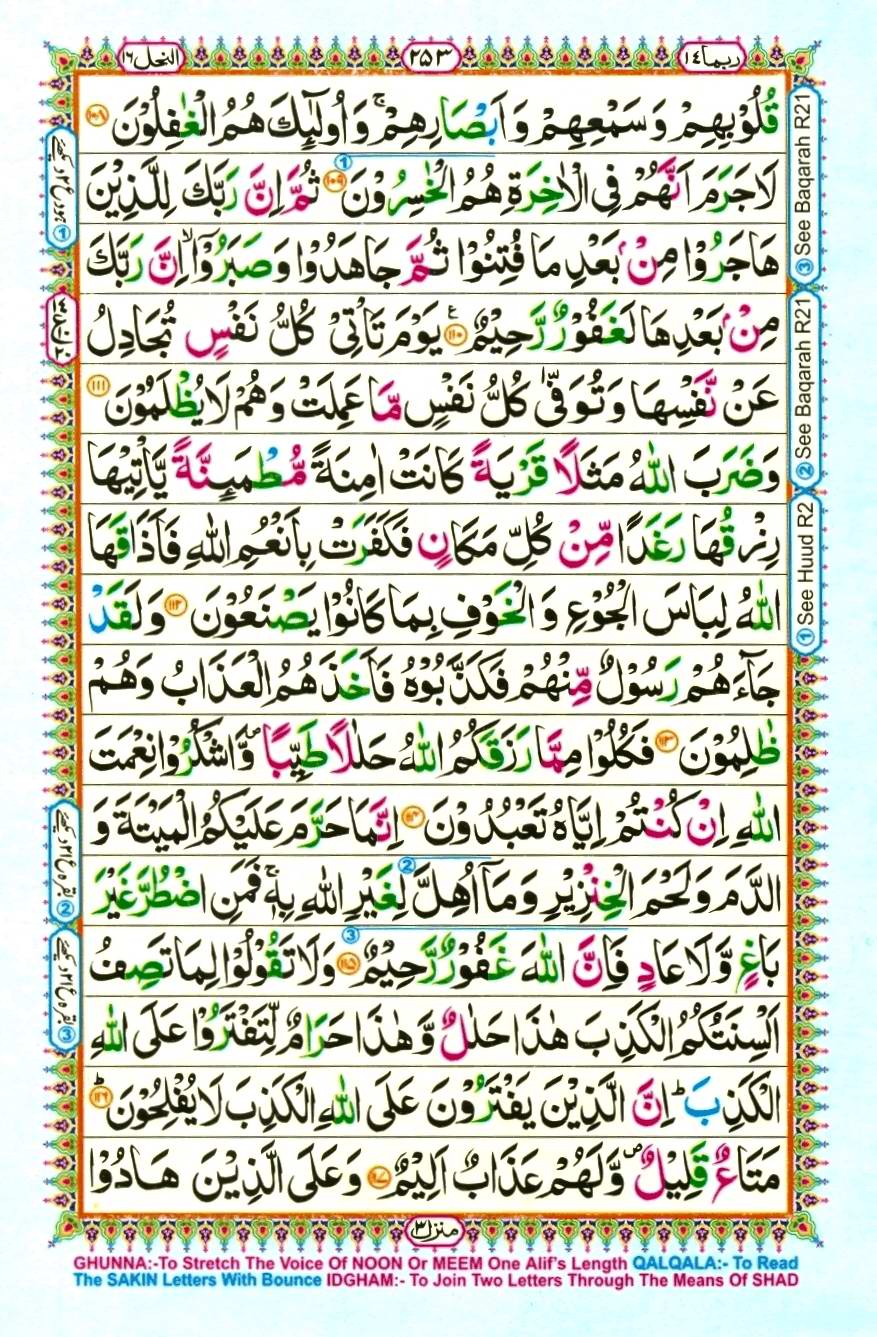 ربما ١٤
٢٥٣
النحل ١٦
قُلُوْبِهِمْ وَ سَمْعِهِمْ وَ اَبْصَارِهِمْ ۚ وَ اُولٰٓئِكَ هُمُ الْغٰفِلُوْنَ ۝١٠٨
لَا جَرَمَ اَنَّهُمْ فِی الْاٰخِرَةِ هُمُ الْخٰسِرُوْنَ ۝١٠٩ ثُمَّ اِنَّ رَبَّكَ لِلَّذِیْنَ
هَاجَرُوْا مِنْۢ بَعْدِ مَا فُتِنُوْا ثُمَّ جَاهَدُوْا وَ صَبَرُوْۤا ۙ اِنَّ رَبَّكَ
مِنْۢ بَعْدِهَا لَغَفُوْرٌ رَّحِیْمٌ ۝١١٠ یَوْمَ تَاْتِیْ كُلُّ نَفْسٍ تُجَادِلُ
عَنْ نَّفْسِهَا وَ تُوَفّٰی كُلُّ نَفْسٍ مَّا عَمِلَتْ وَ هُمْ لَا یُظْلَمُوْنَ ۝١١١
وَ ضَرَبَ اللّٰهُ مَثَلًا قَرْیَةً كَانَتْ اٰمِنَةً مُّطْمَىِٕنَّةً یَّاْتِیْهَا
رِزْقُهَا رَغَدًا مِّنْ كُلِّ مَكَانٍ فَكَفَرَتْ بِاَنْعُمِ اللّٰهِ فَاَذَاقَهَا
اللّٰهُ لِبَاسَ الْجُوْعِ وَ الْخَوْفِ بِمَا كَانُوْا یَصْنَعُوْنَ ۝١١٢ وَ لَقَدْ
جَآءَهُمْ رَسُوْلٌ مِّنْهُمْ فَكَذَّبُوْهُ فَاَخَذَهُمُ الْعَذَابُ وَ هُمْ
ظٰلِمُوْنَ ۝١١٣ فَكُلُوْا مِمَّا رَزَقَكُمُ اللّٰهُ حَلٰلًا طَیِّبًا ۪ وَّ اشْكُرُوْا نِعْمَتَ
اللّٰهِ اِنْ كُنْتُمْ اِیَّاهُ تَعْبُدُوْنَ ۝١١٤ اِنَّمَا حَرَّمَ عَلَیْكُمُ الْمَیْتَةَ وَ
الدَّمَ وَ لَحْمَ الْخِنْزِیْرِ وَ مَاۤ اُهِلَّ لِغَیْرِ اللّٰهِ بِهٖ ۚ فَمَنِ اضْطُرَّ غَیْرَ
بَاغٍ وَّ لَا عَادٍ فَاِنَّ اللّٰهَ غَفُوْرٌ رَّحِیْمٌ ۝١١٥ وَ لَا تَقُوْلُوْا لِمَا تَصِفُ
اَلْسِنَتُكُمُ الْكَذِبَ هٰذَا حَلٰلٌ وَّ هٰذَا حَرَامٌ لِّتَفْتَرُوْا عَلَی اللّٰهِ
الْكَذِبَ ؕ اِنَّ الَّذِیْنَ یَفْتَرُوْنَ عَلَی اللّٰهِ الْكَذِبَ لَا یُفْلِحُوْنَ ۝١١٦ؕ
مَتَاعٌ قَلِیْلٌ ۪ وَّ لَهُمْ عَذَابٌ اَلِیْمٌ ۝١١٧ وَ عَلَی الَّذِیْنَ هَادُوْا
منزل ٣
③ See Baqarah R21
② See Baqarah R21
① See Huud R2
GHUNNA:-To Stretch The Voice Of NOON Or MEEM One Alif's Length QALQALA:- To Read
The SAKIN Letters With Bounce IDGHAM:- To Join Two Letters Through The Means Of SHAD